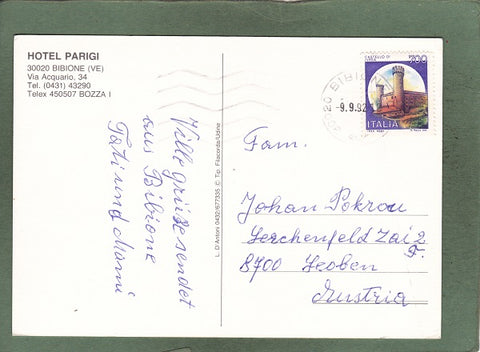 HOTEL PARIGI
30020 BIBIONE (VE)
Via Acquario, 34
Tel. (0431) 43290
Telex 450507 BOZZA I
Ville grüße sendet
aus Bibione
Tati und Mami
L. D'Antoni 0432/677335 © Tip. Filacorda/Udine
BIBIONE
9.9.92
CASTELLO DI
700
ITALIA
Fam.
Johan Pokrou
Lerchenfeld Zai 2
F.
8700 Leoben
Austria